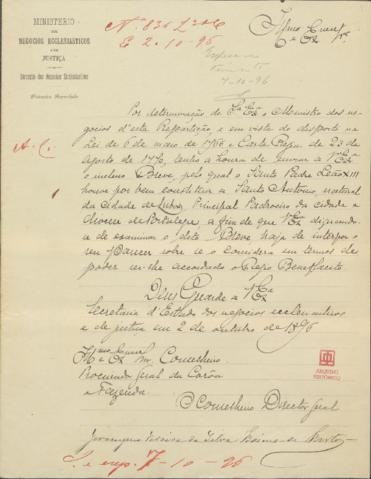 MINISTERIO
DOS
NEGOCIOS ECCLESIASTICOS
E DE
JUSTIÇA
Direcção dos Negocios Ecclesiasticos
Primeira Repartição
Nº 836 L
E 2-10-96
7-10-96
Illmo Exmo
Por determinação de Sª Exª o Ministro dos ne
gocios d'esta Repartição e em vista do disposto na
Lei de 6 de maio de 1765 e Carta Regia de 23 de
Agosto de 1770, tenho a honra de enviar a Vª Exª
o incluso Breve, pelo qual o Santo Padre Leão XIII
houve por bem constituir a Santo Antonio, natural
da Cidade de Lisboa, Principal Padroeiro da cidade e
diocese de Portalegre, a fim de que Vª Exª dignando-
se de examinar o dito Breve haja de interpor o
seu Parecer sobre se o considera em termos de
poder ser-lhe accordado o Regio Beneplacito
Deus Guarde a Vª Exª
Secretaria d'Estado dos negocios ecclesiasticos
e de justiça em 2 de outubro de 1896
Illmo e Exmo Snr Conselheiro
Procurador Geral da Corôa
e Fazenda
O Conselheiro Director Geral
ARQUIVO
HISTÓRICO
da Silva
7-10-96